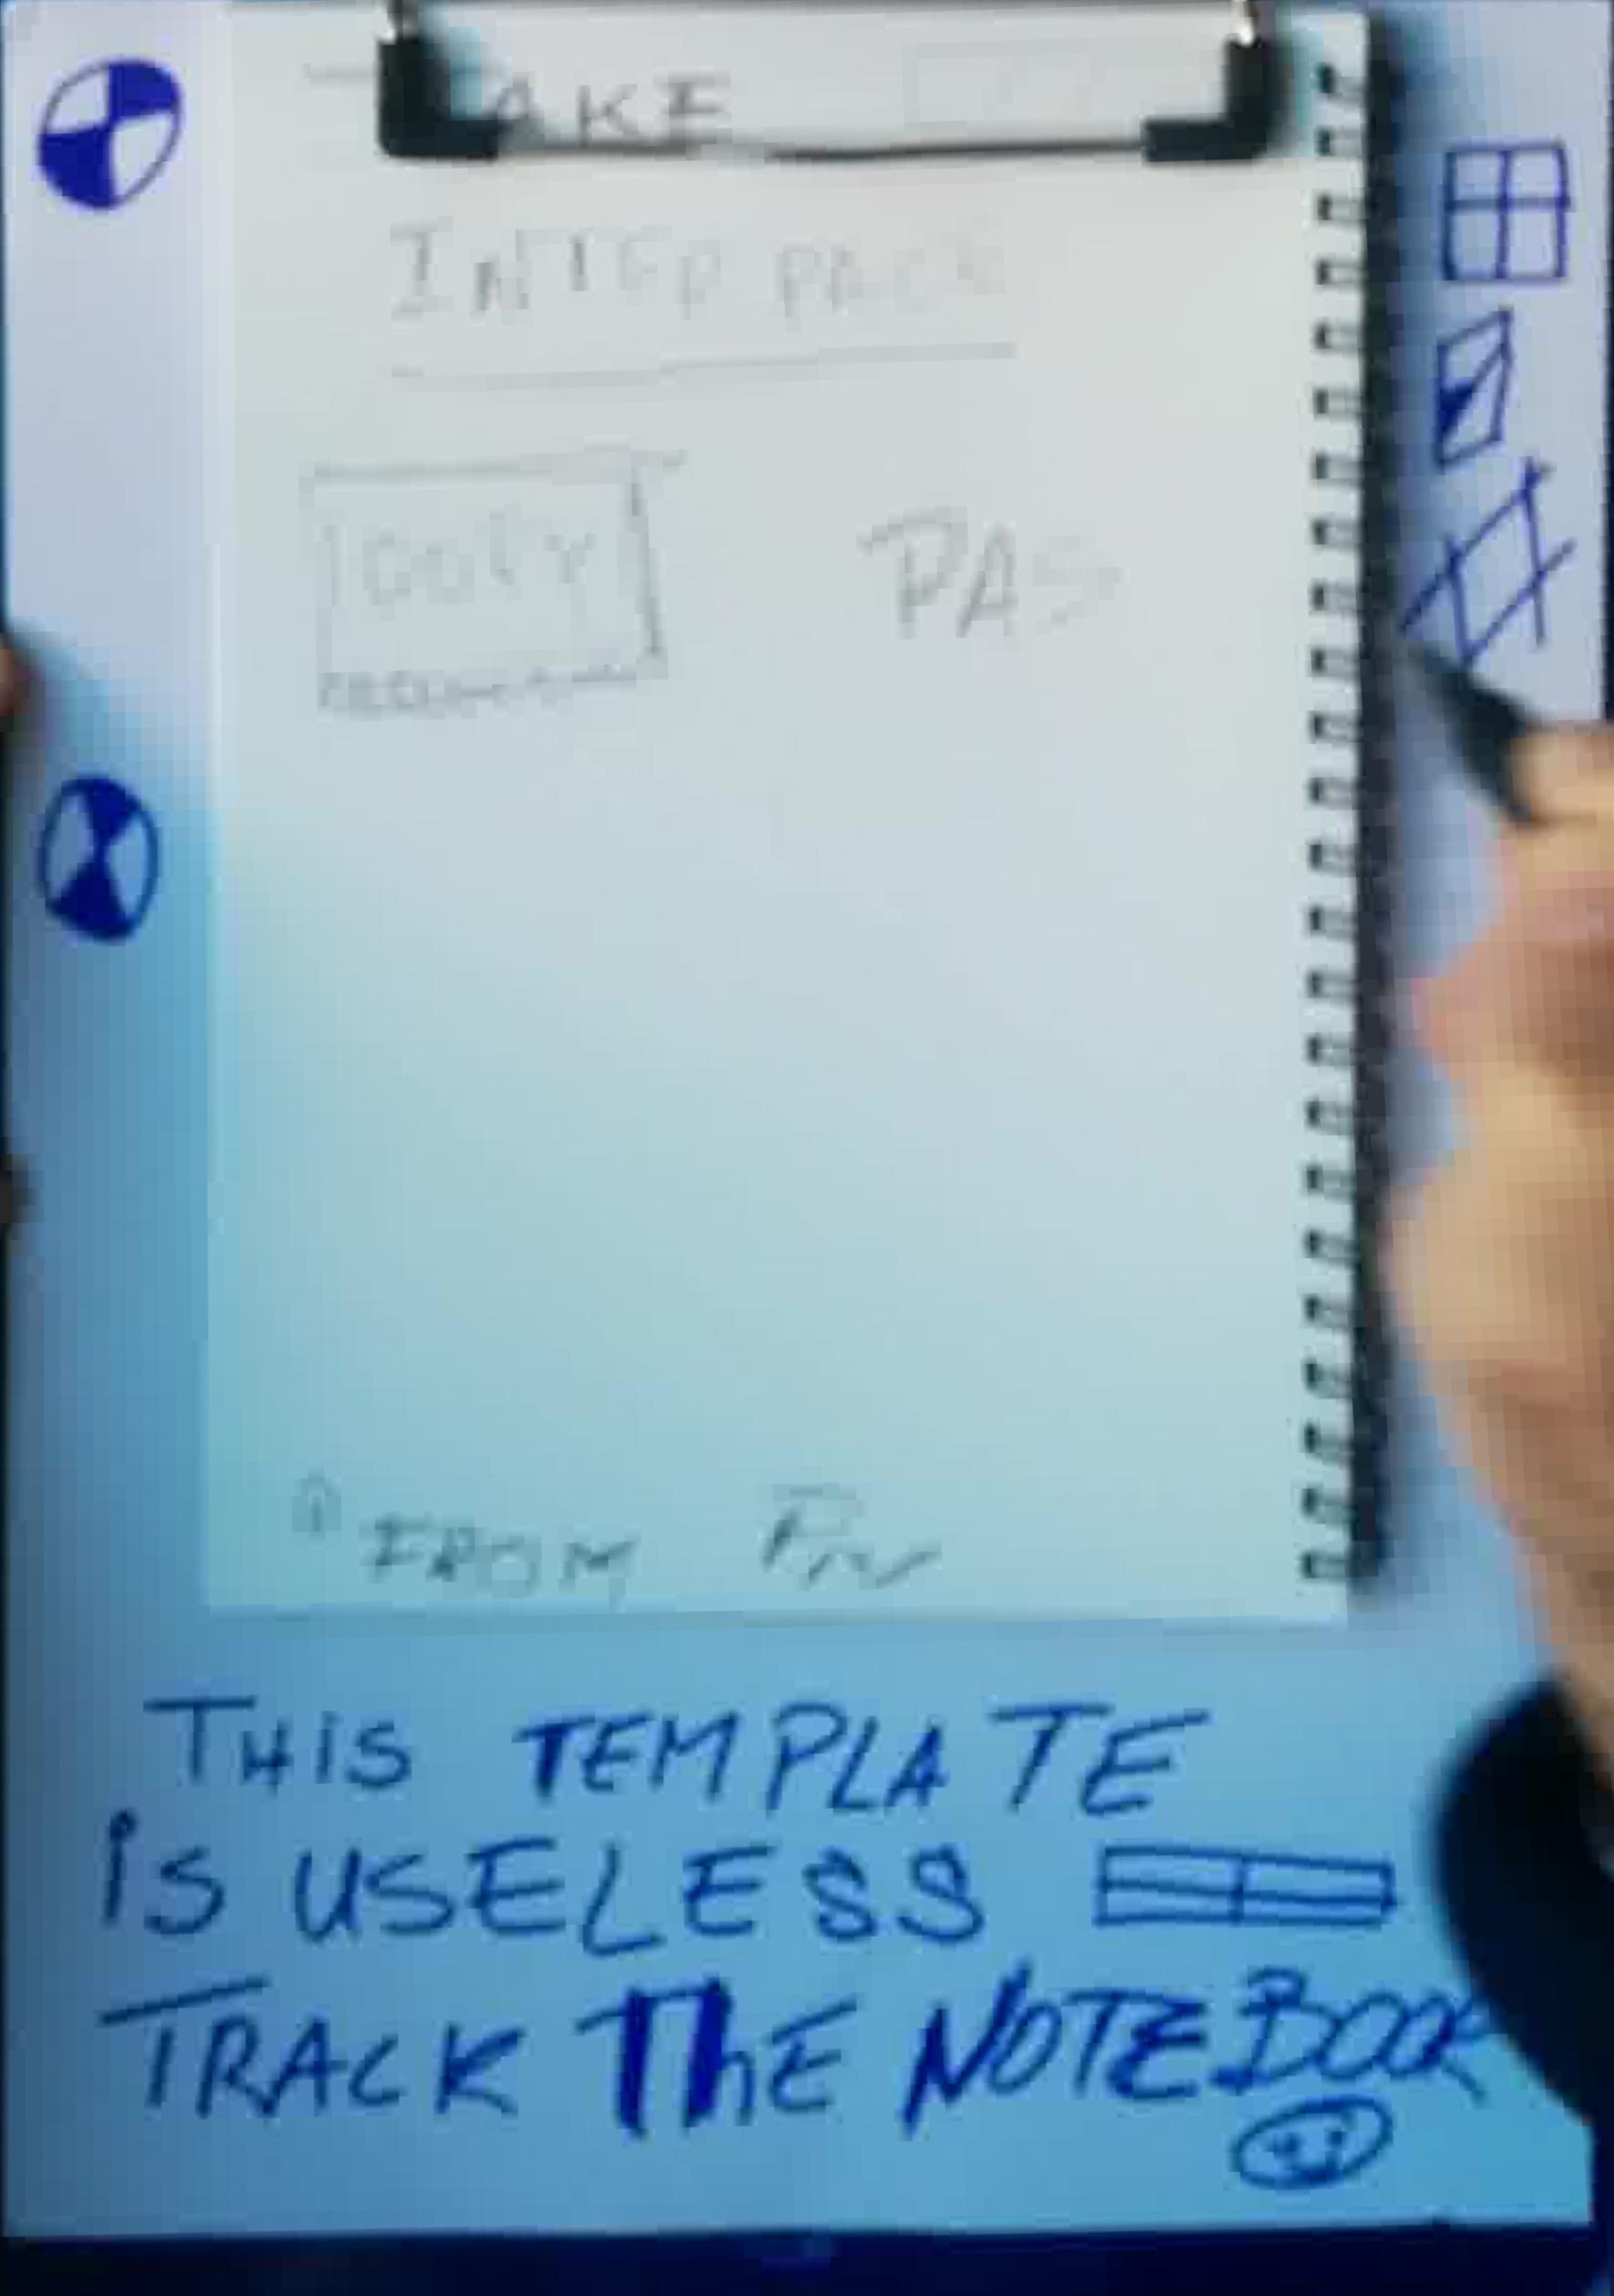 AKE
INTERPAGE
COPY PAS
FROM
THiS TEMPLATE
iS USELESS
TRACK ThE NOTEBOOK